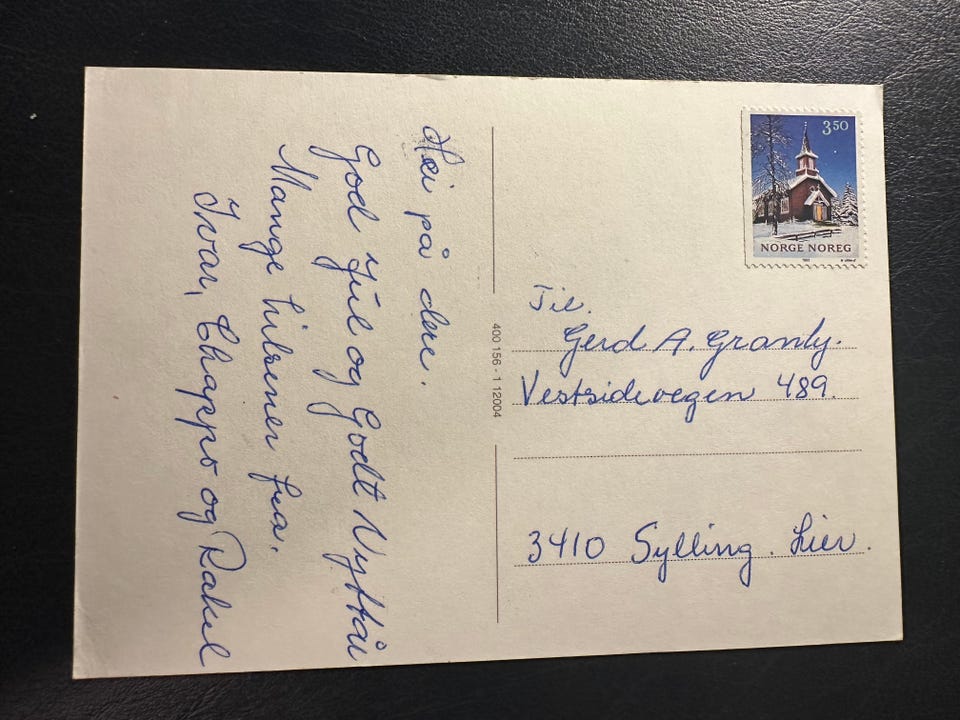 Hei på dere.
God Jul og Godt Nyttår
Mange hilsener fra.
Ivar, Chappo og Rakel
400 156 - 1 12004
3.50
NORGE NOREG
Til.
Gerd A. Granly.
Vestsidevegen 489.
3410 Sylling. Lier.